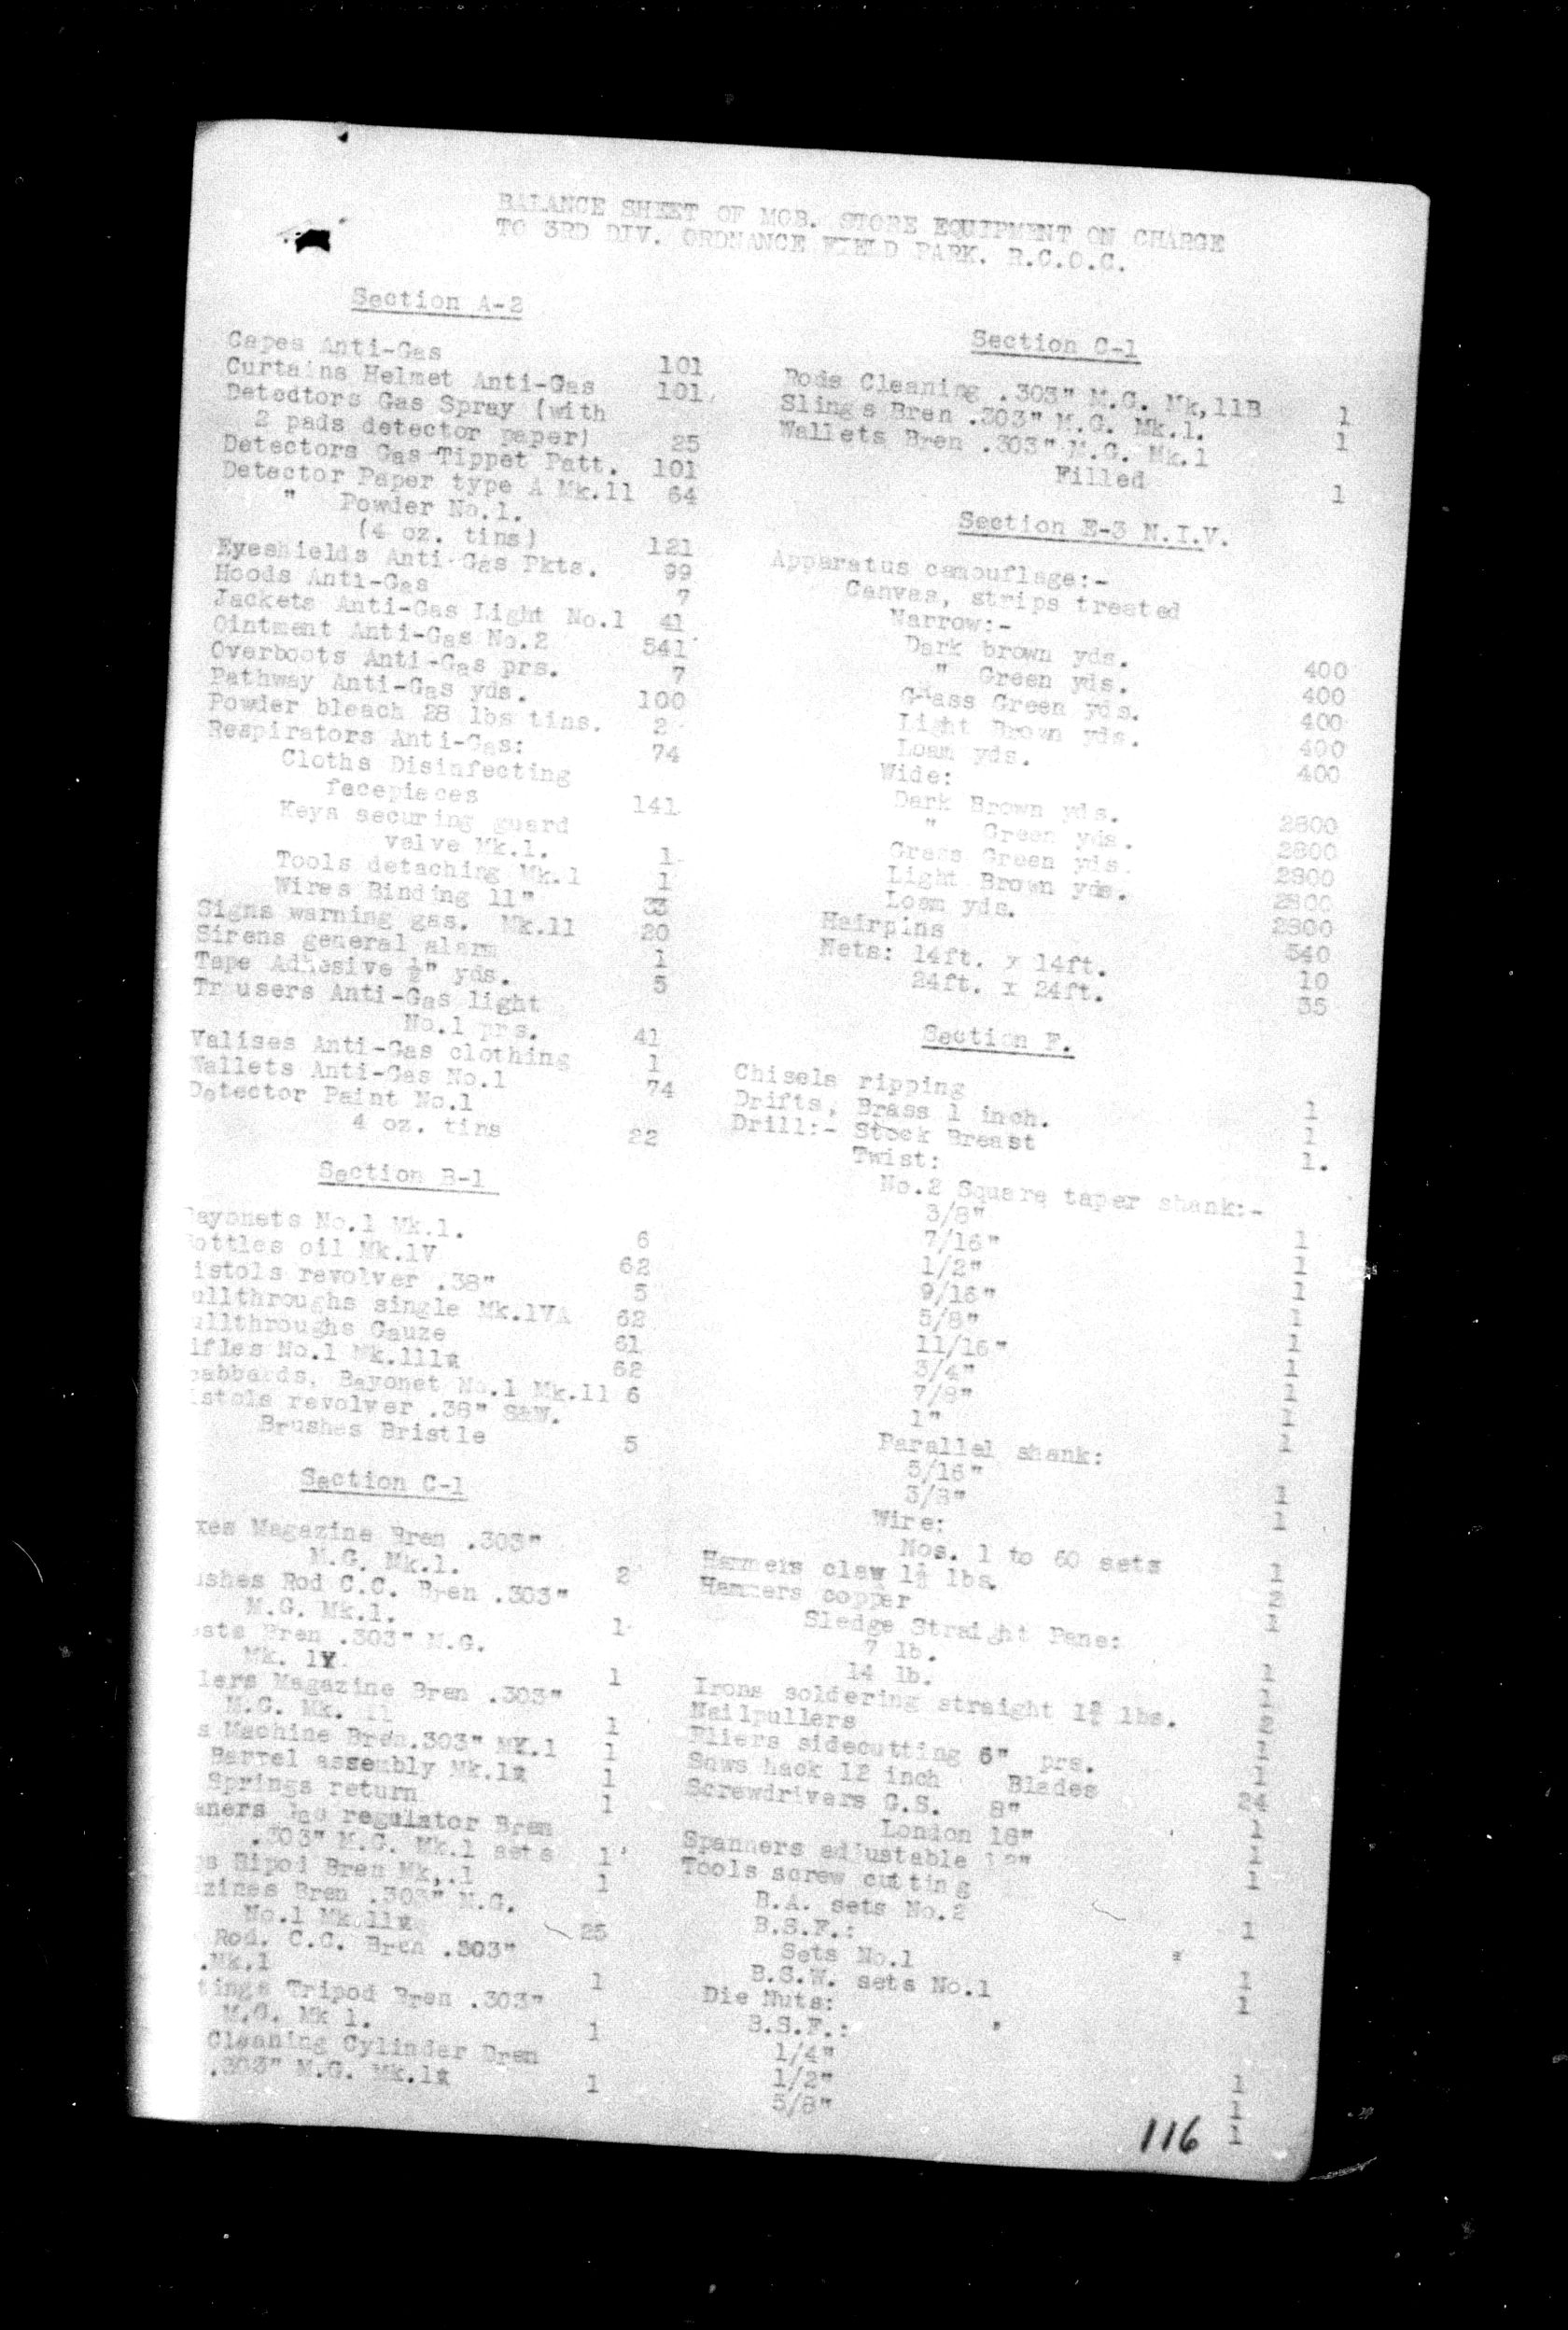 BALANCE SHEET OF MOB. STORE EQUIPMENT ON CHARGE
TO 3RD DIV. ORDNANCE FIELD PARK. R.C.O.C.
Section A-2
Capes Anti-Gas 101
Curtains Helmet Anti-Gas 101
Detedtors Gas Spray (with
2 pads detector paper) 25
Detectors Gas Tippet Patt. 101
Detector Paper type A Mk.11 64
" Powder No.1.
(4 oz. tins) 121
Eyeshields Anti-Gas Pkts. 99
Hoods Anti-Gas 7
Jackets Anti-Gas Light No.1 41
Ointment Anti-Gas No.2 541
Overboots Anti-Gas prs. 7
Pathway Anti-Gas yds. 100
Powder bleach 28 lbs tins. 2
Respirators Anti-Gas: 74
Cloths Disinfecting
facepieces 141
Keys securing guard
valve Mk.1. 1
Tools detaching Mk.1 1
Wires Binding 11" 33
Signs warning gas. Mk.11 20
Sirens general alarm 1
Tape Adhesive ½" yds. 5
Tr users Anti-Gas light
No.1 prs. 41
Valises Anti-Gas clothing 1
Wallets Anti-Gas No.1 74
Detector Paint No.1
4 oz. tins 22
Section B-1
ayonets No.1 Mk.1. 6
ottles oil Mk.1V 62
istols revolver .38" 5
ullthroughs single Mk.1VA 62
ullthroughs Gauze 61
ifles No.1 Mk.111* 62
cabbards, Bayonet No.1 Mk.11 6
istols revolver .38" S&W.
Brushes Bristle 5
Section C-1
xes Magazine Bren .303"
M.G. Mk.1. 2
ushes Rod C.C. Bren .303"
M.G. Mk.1. 1
sts Bren .303" M.G.
Mk. 1 1
lers Magazine Bren .303"
M.G. Mk. 11 1
s Machine Bren.303" MK.1 1
Barrel assembly Mk.1* 1
Springs return 1
aners gas regulator Bren
.303" M.G. Mk.1 sets 1
gs Bipod Bren Mk,.1 1
azines Bren .303" M.G.
No.1 Mk.11* 25
Rod. C.C. Bren .303"
.Mk.1 1
tings Tripod Bren .303"
M.G. Mk 1. 1
Cleaning Cylinder Bren
.303" M.G. Mk.1* 1
Section C-1
Rods Cleaning .303" M.G. Mk,11B 1
Slings Bren .303" M.G. Mk.1. 1
Wallets Bren .303" M.G. Mk.1
Filled 1
Section E-3 N.I.V.
Apparatus camouflage:-
Canvas, strips treated
Narrow:-
Dark brown yds. 400
" Green yds. 400
Grass Green yds. 400
Light Brown yds. 400
Loam yds. 400
Wide:
Dark Brown yds. 2800
" Green yds. 2800
Grass Green yds. 2800
Light Brown yds. 2800
Loam yds. 2800
Hairpins 540
Nets: 14ft. x 14ft. 10
24ft. x 24ft. 35
Section F.
Chisels ripping 1
Drifts, Brass 1 inch. 1
Drill:- Stock Breast 1.
Twist:
No.2 Square taper shank:-
3/8" 1
7/16" 1
1/2" 1
9/16" 1
5/8" 1
11/16" 1
3/4" 1
7/8" 1
1" 1
Parallel shank:
5/16" 1
3/8" 1
Wire:
Nos. 1 to 60 sets 1
Hammers claw 1½ lbs. 2
Hammers copper 1
Sledge Straight Pane:
7 lb. 1
14 lb. 1
Irons soldering straight 1¾ lbs. 2
Nailpullers 1
Pliers sidecutting 6" prs. 1
Saws hack 12 inch Blades 24
Screwdrivers G.S. 8" 1
London 18" 1
Spanners adjustable 1
Tools screw cutting
B.A. sets No.2 1
B.S.F.:
Sets No.1 1
B.S.W. sets No.1 1
Die Nuts:
B.S.F.:
1/4" 1
1/2" 1
5/8" 1
116